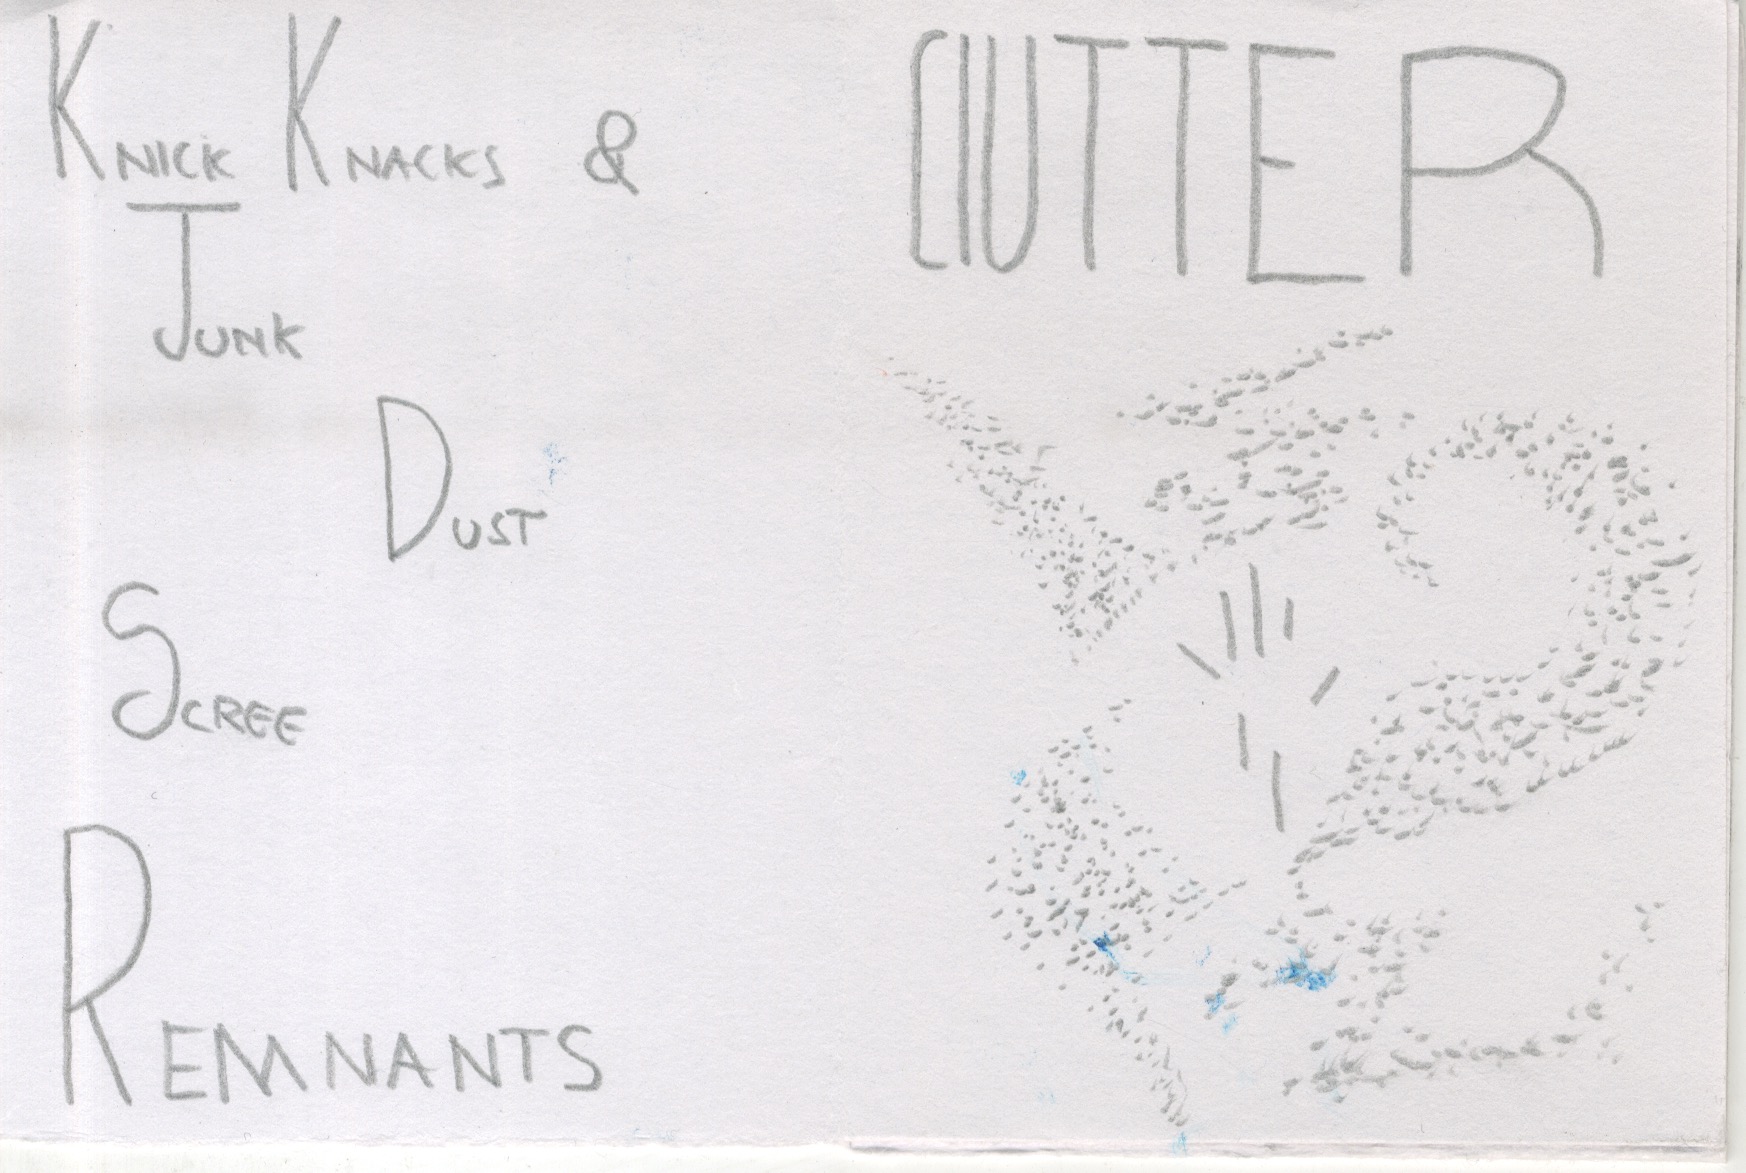 Knick Knacks &
Junk
Dust
Scree
Remnants
ClUTTER